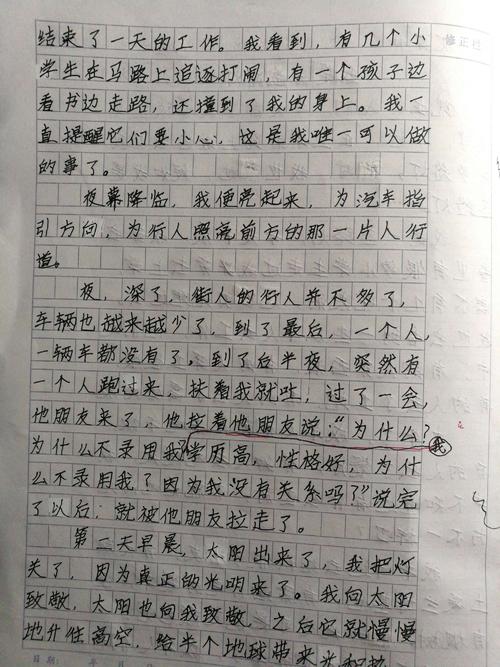 修正栏
结束了一天的工作。我看到，有几个小
学生在马路上追逐打闹，有一个孩子边
看书边走路，还撞到了我的身上。我一
直提醒它们要小心，这是我唯一可以做
的事了。
夜幕降临，我便亮起来，为汽车指
引方向，为行人照亮前方的那一片人行
道。
夜，深了，街人的行人并不多了，
车辆也越来越少了，到了最后，一个人，
一辆车都没有了，到了后半夜，突然有
一个人跑过来，扶着我就吐，过了一会，
他朋友来了，他拉着他朋友说：“为什么？
我
为什么不录用我“学历高，性格好，为什
么不录用我？因为我没有关系吗？”说完
了以后；就被他朋友拉走了。
第二天早晨，太阳出来了，我把灯
关了，因为真正的光明来了。我向太阳
致敬，太阳也向我致敬，之后它就慢慢
地升往高空，给半个地球带来光和热
日期： 年 月 日